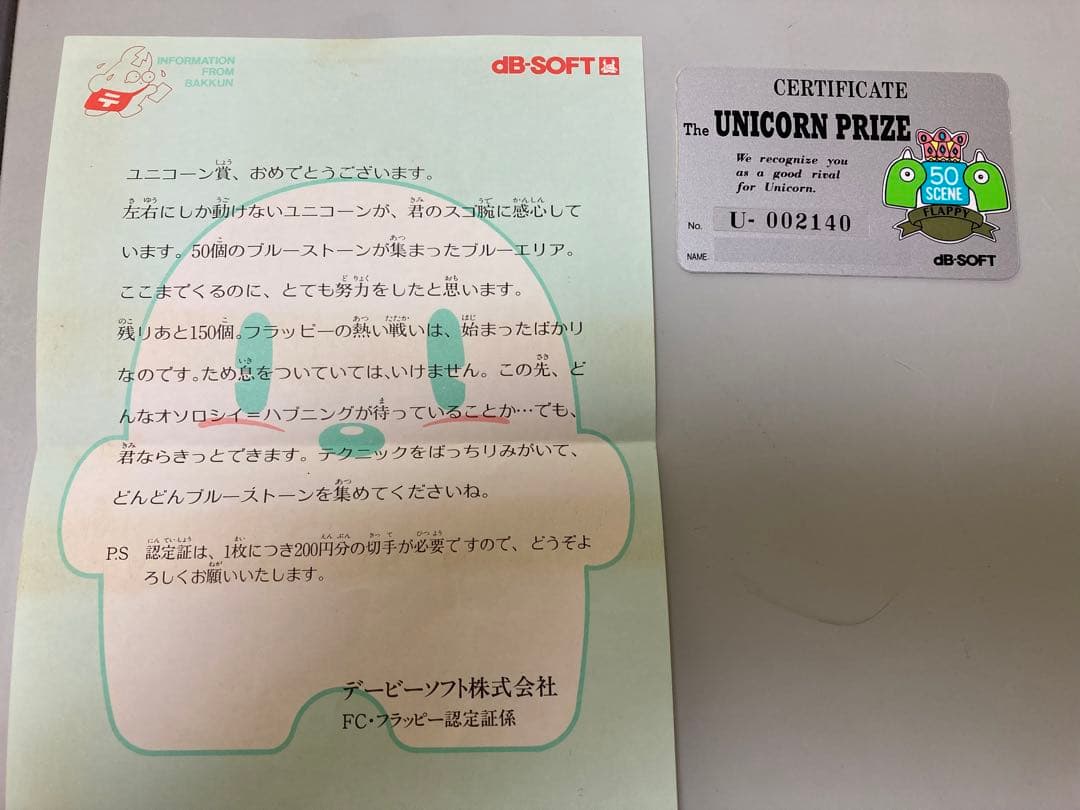 INFORMATION
FROM
BAKKUN
〒
dB-SOFT
ユニコーン賞、おめでとうございます。
左右にしか動けないユニコーンが、君のスゴ腕に感心して
います。50個のブルーストーンが集まったブルーエリア。
ここまでくるのに、とても努力をしたと思います。
残りあと150個。フラッピーの熱い戦いは、始まったばかり
なのです。ため息をついていては、いけません。この先、ど
んなオソロシイ＝ハプニングが待っていることか…でも、
君ならきっとできます。テクニックをばっちりみがいて、
どんどんブルーストーンを集めてくださいね。
P.S 認定証は、1枚につき200円分の切手が必要ですので、どうぞよ
ろしくお願いいたします。
デービーソフト株式会社
FC・フラッピー認定証係
CERTIFICATE
The UNICORN PRIZE
We recognize you
as a good rival
for Unicorn.
50
SCENE
FLAPPY
No. U- 002140
NAME
dB-SOFT